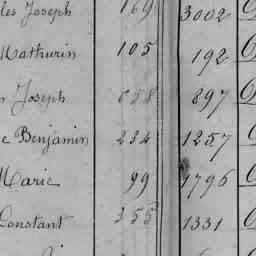 les Joseph 169 3002
Mathurin 105 192
Joseph 658 897
Benjamin 234 1257
Marie 99 1796
Constant 355 1331